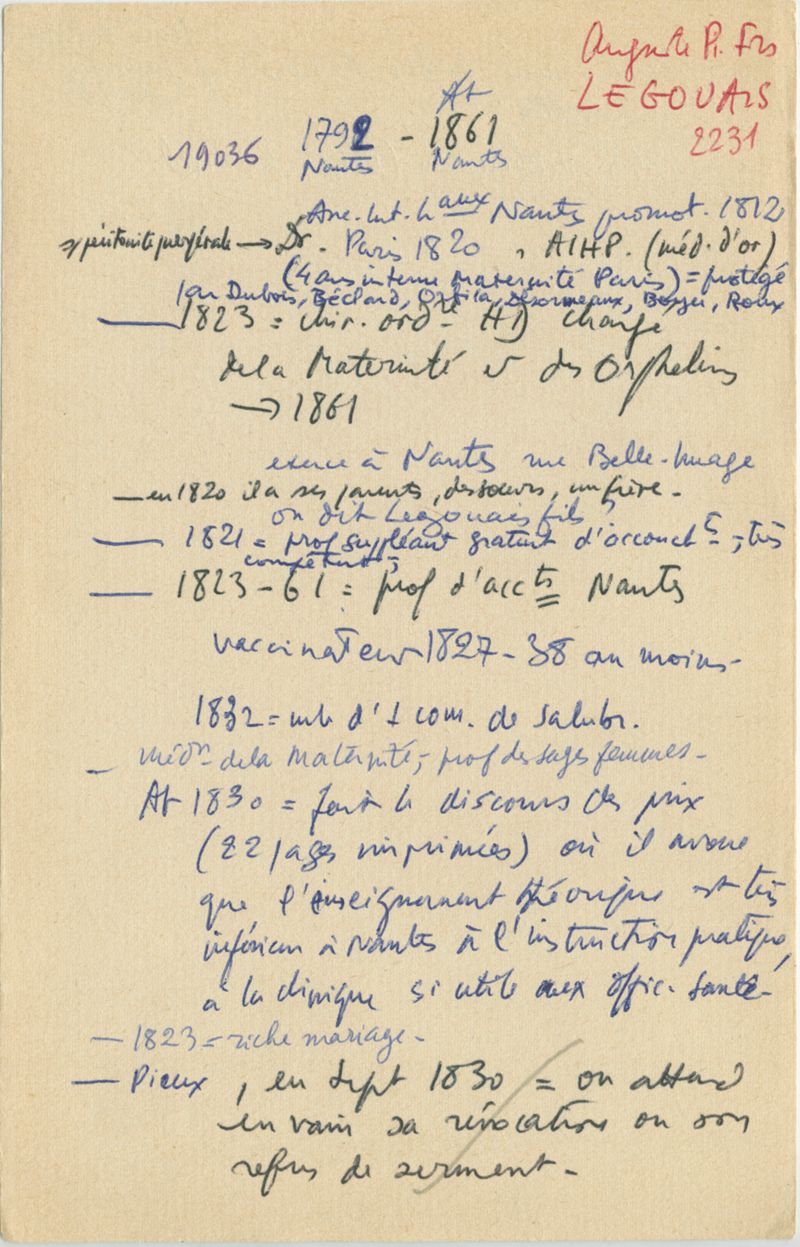 Auguste P. Frs
LEGOUAIS
2231
At
19036 1792 - 1861
Nantes Nantes
Anc. Int. haux Nantes promot. 1812
péritonite puerpérale → Dr. Paris 1820, AIHP. (méd. d'or)
(4 ans interne Maternité Paris) = protégé
par Dubois, Béclard, Orfila, Désormeaux, Boyer, Roux
— 1823 = chir. ordre HD chargé
de la Maternité et des Orphelins
→ 1861
exerce à Nantes rue Belle-Image
— en 1820 il a ses parents, des sœurs, un frère -
on dit Legouais fils
— 1821 = prof suppléant gratuit d'accoucht ts -, très
compétent
— 1823 - 61 = prof d'accts Nantes
vaccinateur 1827 - 38 au moins -
1832 = mb d'1 com. de Salubr.
— médn de la Maternité, - prof des sages femmes -
At 1830 = fait le discours des prix
(22 pages imprimées) où il avoue
que l'enseignement théorique est très
inférieur à Nantes à l'instruction pratique,
à la clinique si utile aux offic. Santé -
— 1823 = riche mariage -
— Pieux, en Sept 1830 = on attend
en vain sa révocation ou son
refus de serment -